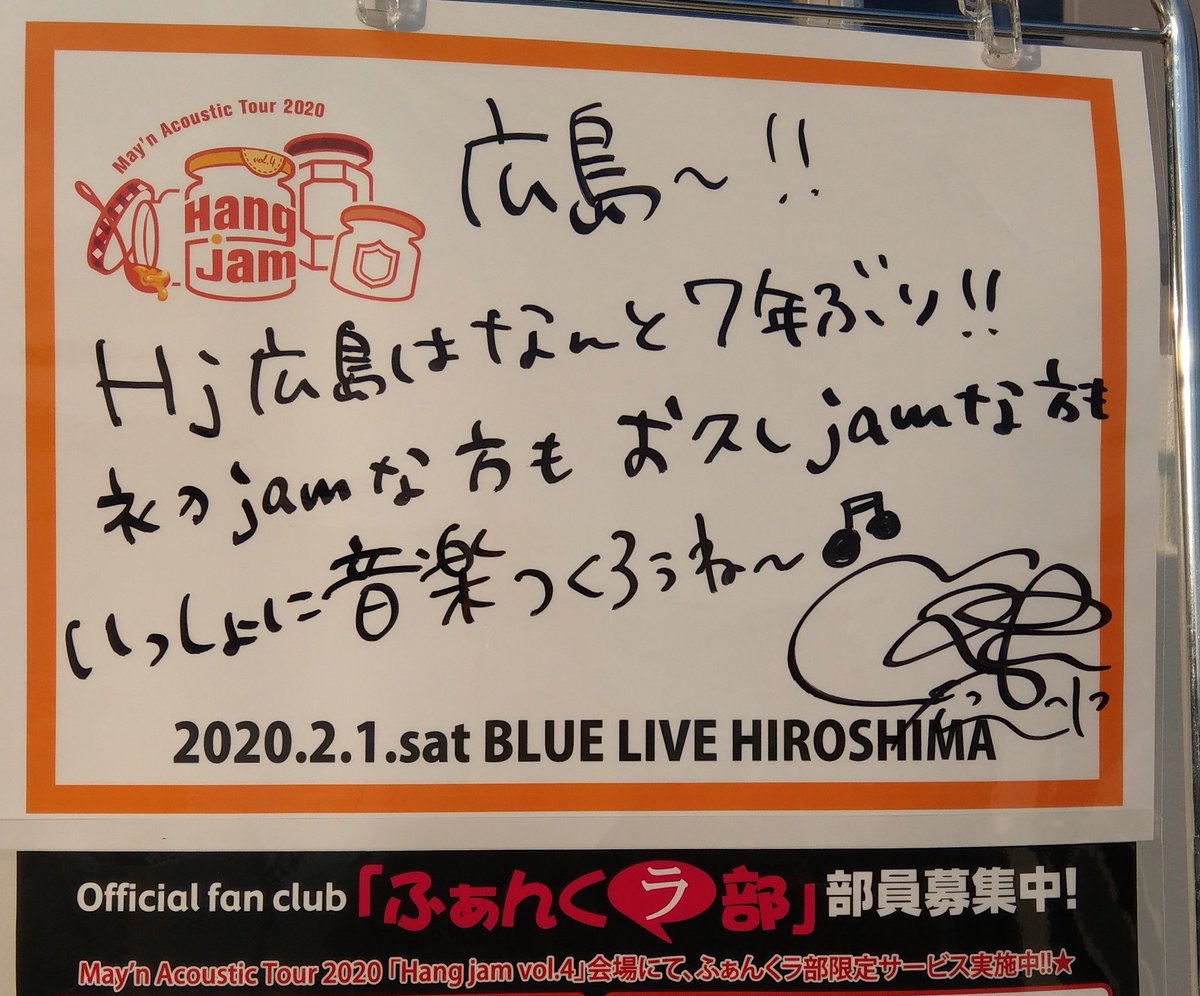 May'n Acoustic Tour 2020
vol.4
Hang
jam
広島〜!!
Hj 広島はなんと7年ぶり!!
ネクjamな方も おスしjamな方も
いっしょに音楽つくろうね〜
2020.2.1.sat BLUE LIVE HIROSHIMA
Official fan club「ふぁんくラ部」部員募集中!
May'n Acoustic Tour 2020「Hang jam vol.4」会場にて、ふぁんくラ部限定サービス実施中!!★